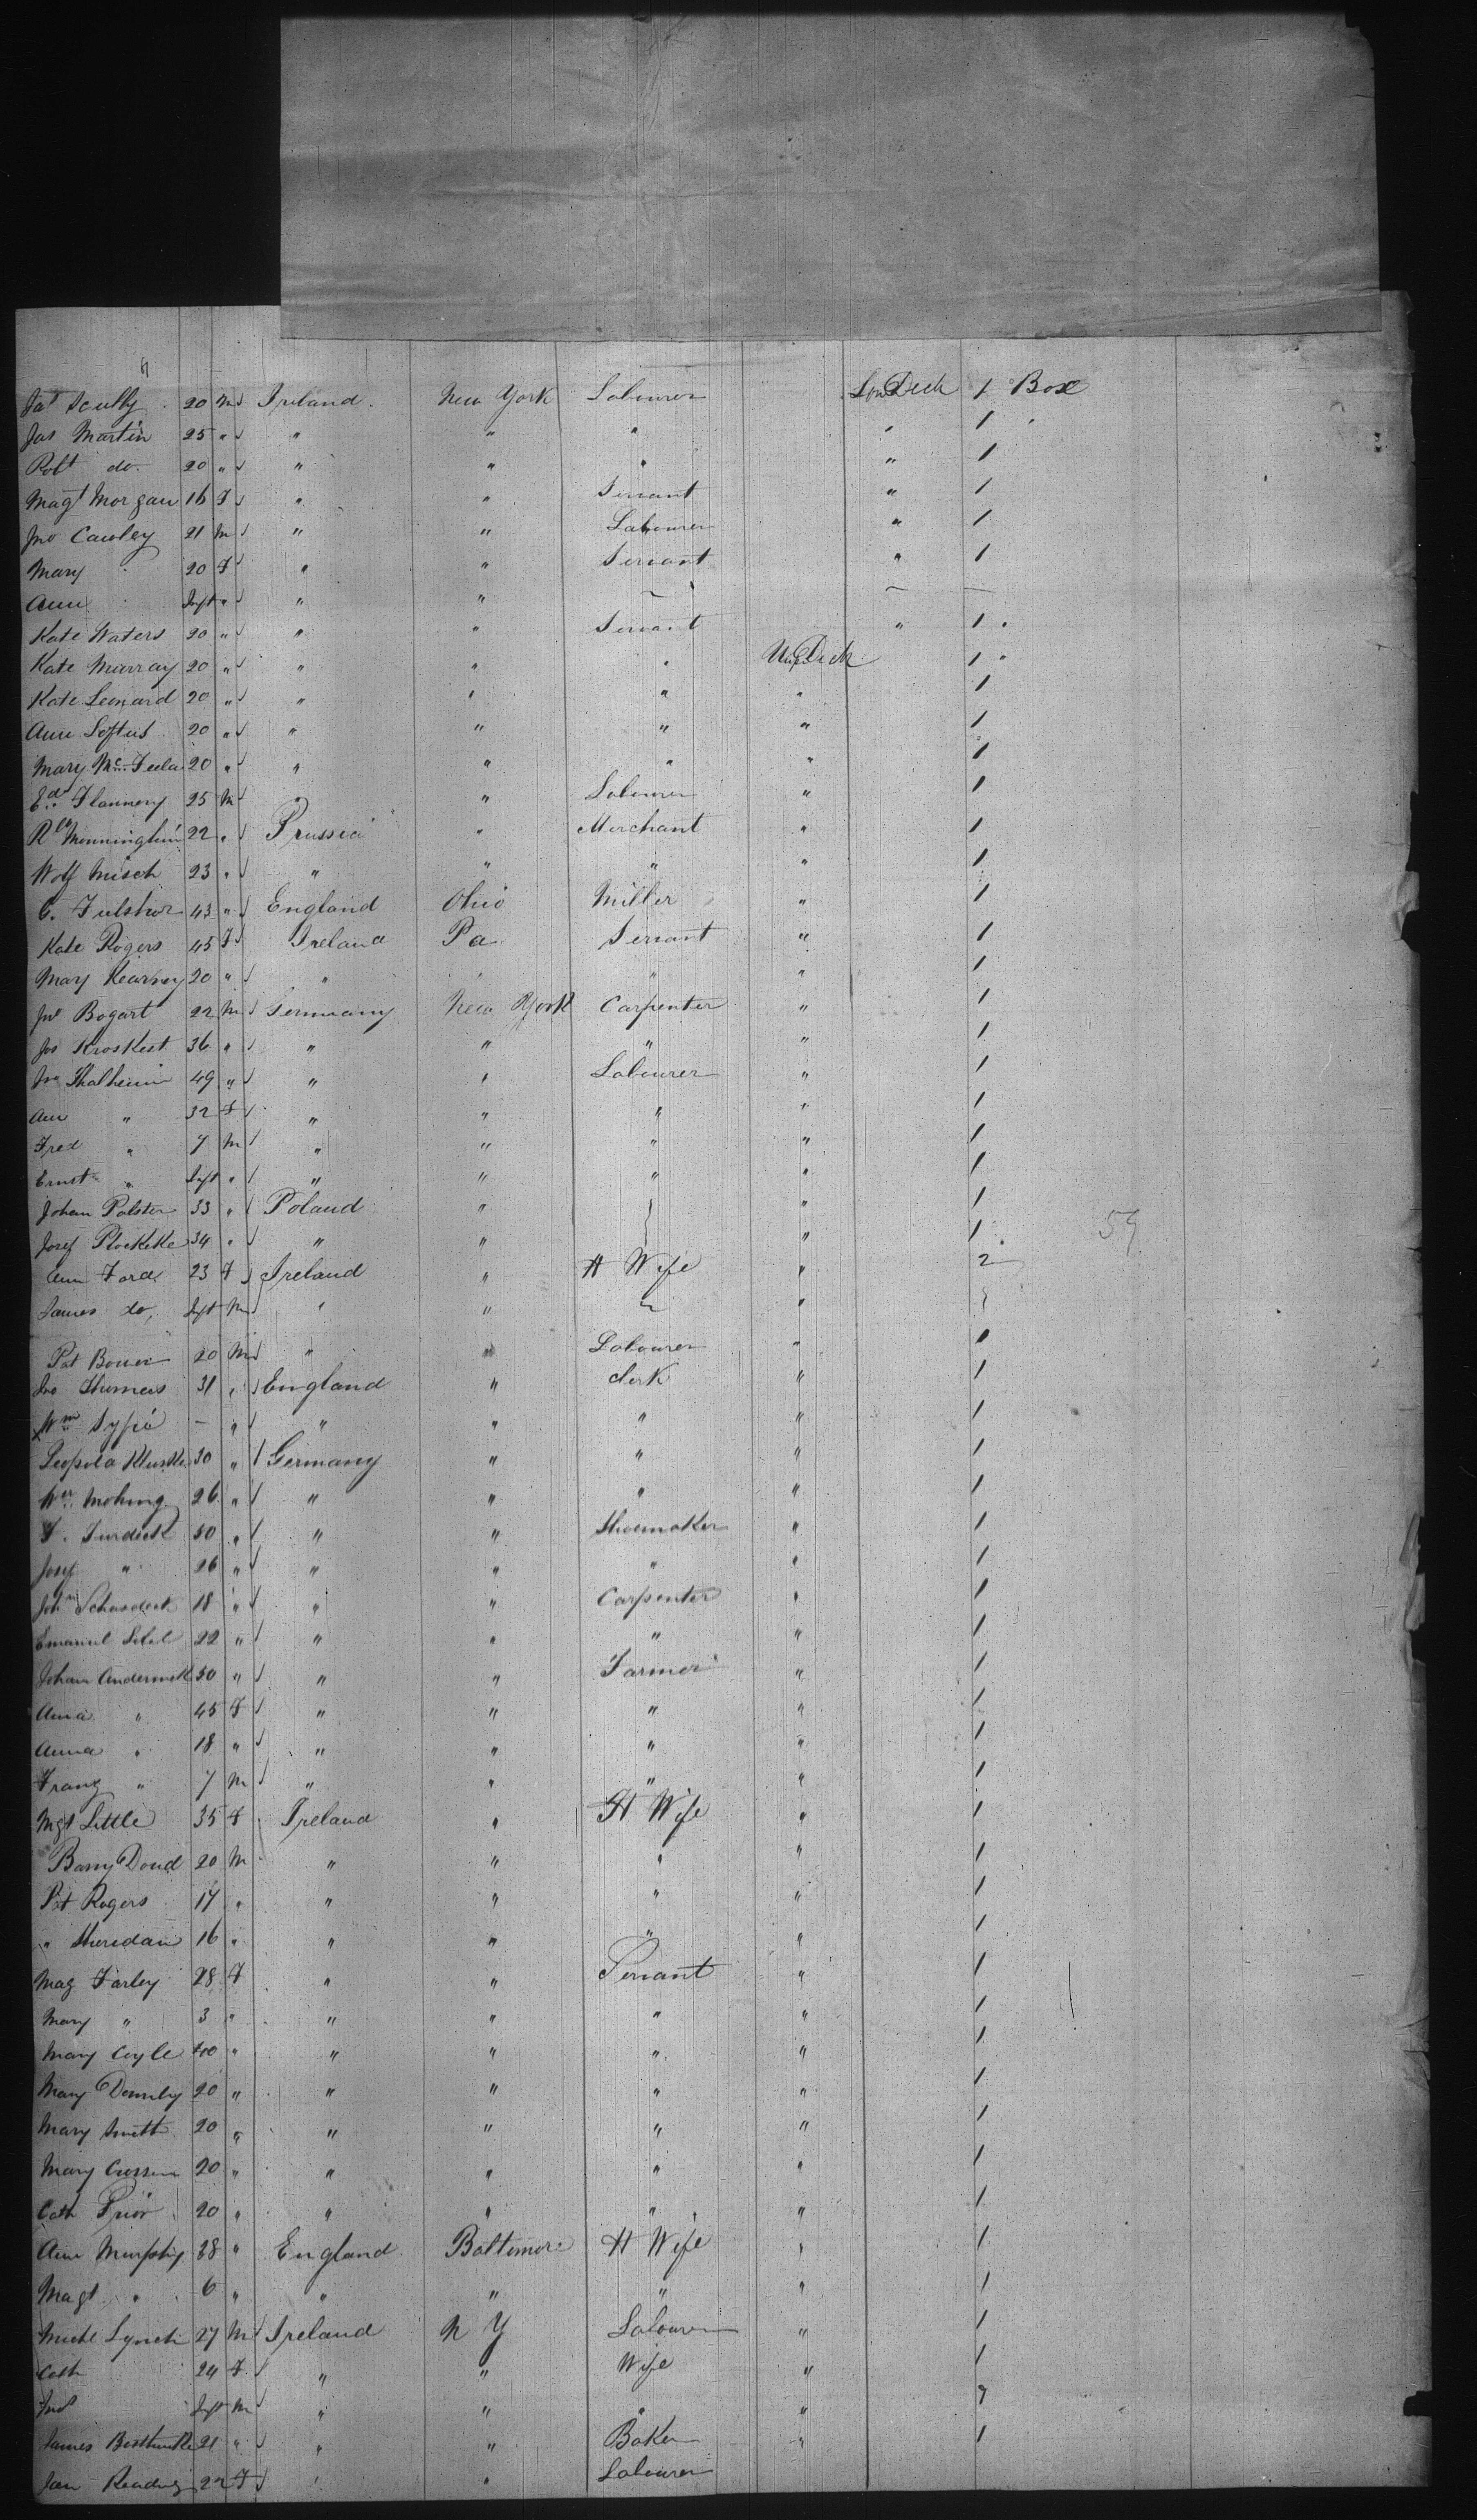 Pat Scully 20 M Ireland New York Labourer Low Deck 1 Box
Jas Martin 25 " " " " " 1
Robt do 20 " " " " " 1
Magt Morgan 16 F " " Servant " 1
Jno Cauley 21 M " " Labourer " 1
Mary " 20 F " " Servant " 1
Ann " Inft " " " ~ ~ —
Kate Waters 20 " " " Servant " 1
Kate Murray 20 " " " " Up Deck 1 "
Kate Leonard 20 " " " " " 1
Ann Loftus 20 " " " " " 1
Mary Mc 20 " " " " " 1
Ed Flannery 25 M " " Labourer " 1
22 " Prussia " Merchant " 1
Wolf Misch 23 " " " " " 1
C. 43 " England Ohio Miller " 1
Kate Rogers 45 F Ireland Pa Servant " 1
Mary Kearney 20 " " " " " 1
Jno Bogart 22 M Germany New York Carpenter " 1
Jos Kroskest 36 " " " " " 1
Jno Thalheim 49 " " " Labourer " 1
Ann " 32 F " " " " 1
Fred " 7 M " " " " 1
Ernst " Inft " " " " " 1
Johan Polster 33 " Poland " " 1
Josef 34 " " " " 1 59
Ann Ford 23 F Ireland " H Wife " 2
James do, Inft M " " ~ "
Pat 20 M " " Labourer " 1
Jno Thomas 31 " England " Clerk " 1
Wm — " " " " " 1
Leopold 30 " Germany " " " 1
Wm Mohring 26 " " " " " 1
F. Furdeck 30 " " " Shoemaker " 1
Josef " 26 " " " " " 1
John 18 " " " Carpenter " 1
Emanuel 22 " " " " " 1
Johan 50 " " " Farmer " 1
Anna " 45 F " " " " 1
Anna " 18 " " " " " 1
Franz " 7 M " " " " 1
Mgt Little 35 F Ireland " H Wife " 1
Barry Doud 20 M " " " " 1
Pat Rogers 17 " " " " " 1
" Sheridan 16 " " " " " 1
Mag Farley 28 F " " Servant " 1
Mary " 3 " " " " " 1
Mary Coyle 40 " " " " " 1
Mary Donnely 20 " " " " " 1
Mary Smith 20 " " " " " 1
Mary 20 " " " " " 1
Cath Prior 20 " " " " " 1
Ann Murphy 38 " England Baltimore H Wife " 1
Magt " 6 " " " " " 1
Michl Lynch 27 M Ireland N Y Labourer " 1
Cath 24 F " " Wife " 1
Jno Inft M " " " "
James 21 " " " Baker " 1
Reading 22 F " " Labourer